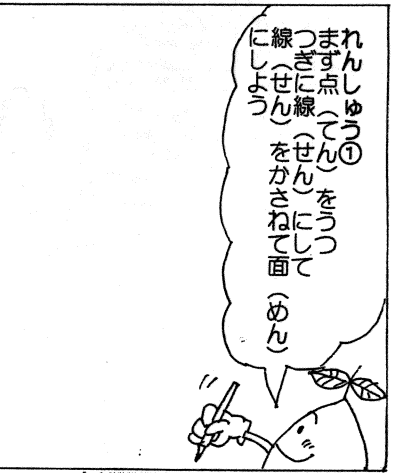 れんしゅう①
まず点（てん）をうつ
つぎに線（せん）にして
線（せん）をかさねて面（めん）
にしよう